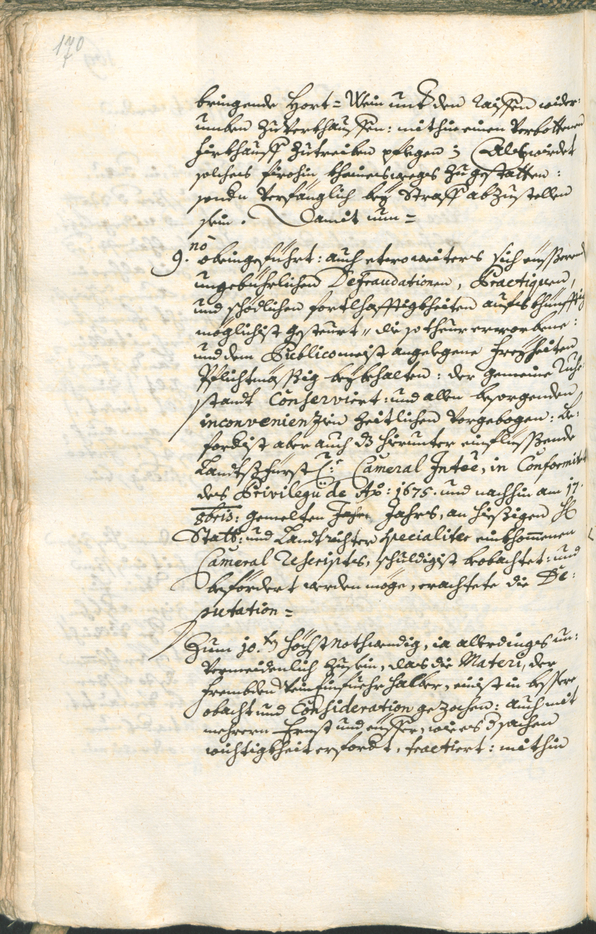 170
bringende Hort= Wein und den Raissen wider=
umben zu Verkhauffen: mithin einen Verbottenen
fürkhauff zutreiben pflegen; Alß würdet
solches fürohin kheinesweegs zu gestatten:
sondern Verfänglich bey Straff abzustellen
sein. Damit nun=
9.no obeingeführt: auch etwo weiters sich eüssernd
ungebührlichen Defraudationen, Practiquen,
und schödlichen forthlhafftigkheiten auf khünfftig
möglichist gesteurt, die so theur erworbene:
und dem Publico meist angelegene Freyheiten
Pflichtmässig beybehalten: der gemeine Ruhe
standt Conserviert: und allen besorgenden
inconvenienzien zeitlichen Vorgebogen: Be=
fordrist aber auch das hierunter einfliessende
Landtsfürst: Cameral Intee, in Conformitet
des Privilegii de Ao: 1675. und nachhin am 17.
8bris: gemelten Jahrs, an hiesigen H
Statt: und Landtrichter specialiter einkhommenen
Cameral Rescripts, schuldigist beobachtet: und
befördert werden möge, erachtete die De=
putation=
Zum 10.ten höchst nothwendig, ia allerdings un=
Vermeidenlich zu sein, das die Materi, der
frembden Wein einfuehr halber, einist in bessere
obacht und Consideration gezochen: Auch mit
mehrern Ernst und eüffer, wie es d sachen
wichtigkheit erfordert, tractiert: mithin